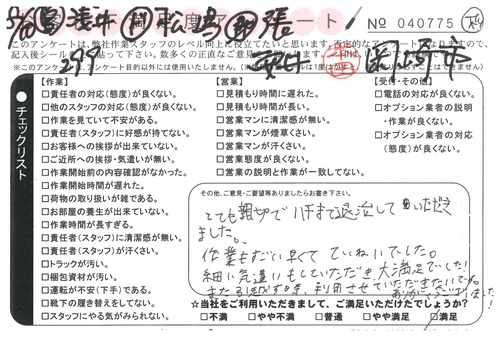 満足度アンケート
No 040775
このアンケートは、弊社作業スタッフのレベル向上に役立てたいと思います。否定的なアンケートになりますので、
記入後シールを貼って下さい。数多くの正直なご意見を
※このアンケートは、アンケート目的以外には使用いたしません。
299
チェックリスト
【作業】
□責任者の対応(態度)が良くない。
□他のスタッフの対応(態度)が良くない。
□作業を見ていて不安がある。
□責任者(スタッフ)に好感が持てない。
□お客様への挨拶が出来ていない。
□ご近所への挨拶・気遣いが無い。
□作業開始前の内容確認がなかった。
□作業開始時間が遅れた。
□荷物の取り扱いが雑である。
□お部屋の養生が出来ていない。
□作業時間が長すぎる。
□責任者(スタッフ)に清潔感が無い。
□責任者(スタッフ)が汗くさい。
□トラックが汚い。
□梱包資材が汚い。
□運転が不安(下手)である。
□靴下の履き替えをしてない。
□スタッフにやる気がみられない。
【営業】
□見積もり時間に遅れた。
□見積もり時間が長い。
□営業マンに清潔感が無い。
□営業マンが煙草くさい。
□営業マンが汗くさい。
□営業態度が良くない。
□営業の説明と作業が一致してない。
【受付・その他】
□電話の対応が良くない。
□オプション業者の説明
・作業が良くない。
□オプション業者の対応
(態度)が良くない。
その他、ご意見・ご要望等ありましたらお書き下さい。
とても親切でハチまで退治して いただき
ました。
作業もすごい早くて ていねいでした。
細い気遣いもしていただき、大満足でした!
またご縁がある時、利用させていただきたいです。
ありがとうございました!
☆当社をご利用いただきまして、ご満足いただけたでしょうか?
□不満 □やや不満 □普通 □やや満足 □満足